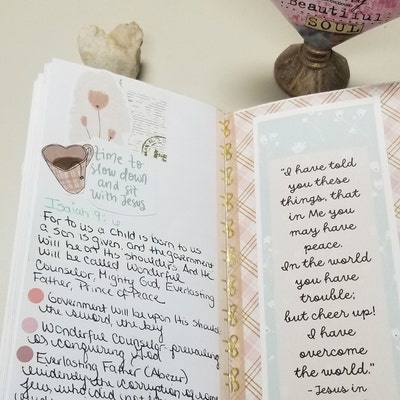 Beautiful
SOUL
time to
slow down
and sit
with Jesus
Isaiah 9:6
For to us a child is born to us
a son is given, and the government
will be on His shoulders. And He
will be called Wonderful
Counselor, Mighty God, Everlasting
Father, Prince of Peace
Government will be upon His should
the sword, the key
Wonderful Counselor - prevailing
as conquering
Everlasting Father
evidently the corruption of some
who did not
"I have told
you these
things, that
in Me you
may have
peace.
In the world
you have
trouble;
but cheer up!
I have
overcome
the world."
- Jesus in